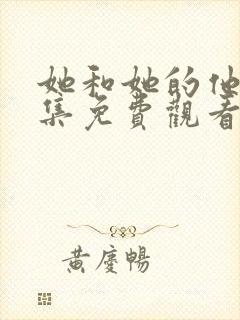 她和她的他
集免費觀看
黃慶暢